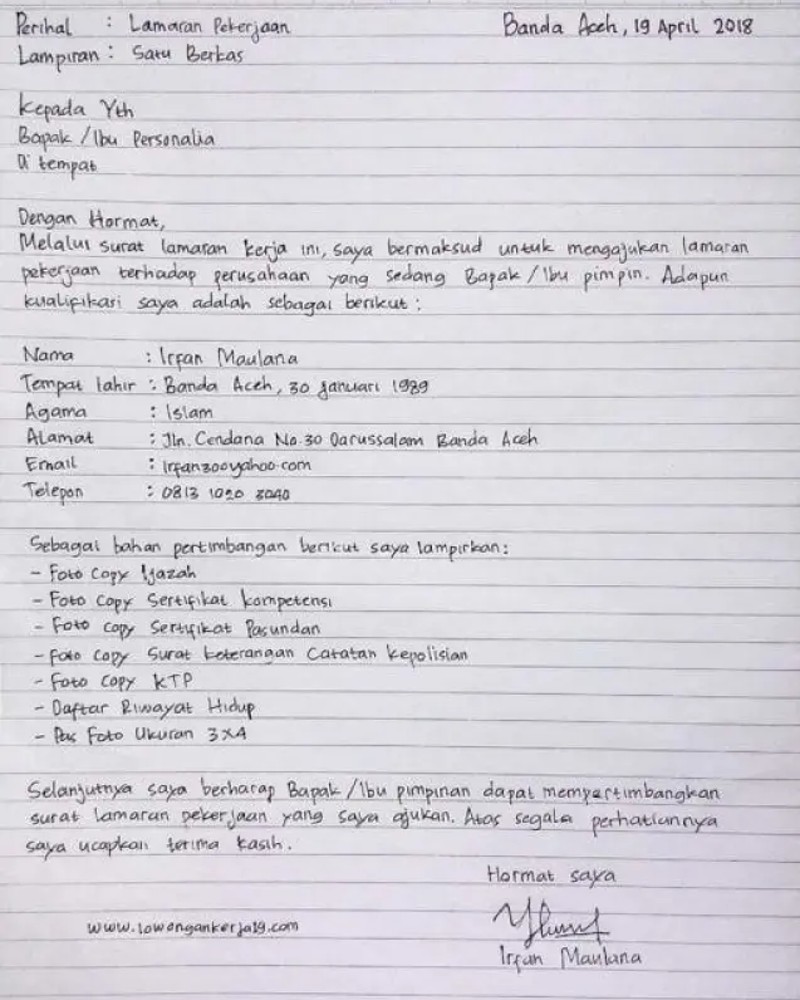 Perihal : Lamaran Pekerjaan Banda Aceh, 19 April 2018
Lampiran : Satu Berkas
Kepada Yth
Bapak /Ibu Personalia
Di tempat
Dengan Hormat,
Melalui surat lamaran kerja ini, saya bermaksud untuk mengajukan lamaran
pekerjaan terhadap perusahaan yang sedang Bapak /Ibu pimpin. Adapun
kualifikasi saya adalah sebagai berikut :
Nama : Irfan Maulana
Tempat lahir : Banda Aceh, 30 Januari 1989
Agama : Islam
Alamat : Jln. Cendana No.30 Darussalam Banda Aceh
Email : irfan30oyahoo.com
Telepon : 0813 1020 3040
Sebagai bahan pertimbangan berikut saya lampirkan :
- Foto Copy Ijazah
- Foto Copy Sertifikat Kompetensi
- Foto Copy Sertifikat Pasundan
- Foto Copy Surat Keterangan Catatan Kepolisian
- Foto Copy KTP
- Daftar Riwayat Hidup
- Pas Foto Ukuran 3x4
Selanjutnya saya berharap Bapak /Ibu pimpinan dapat mempertimbangkan
surat lamaran pekerjaan yang saya ajukan. Atas segala perhatiannya
saya ucapkan terima kasih.
Hormat saya
www.lowongankerja19.com
Irfan Maulana